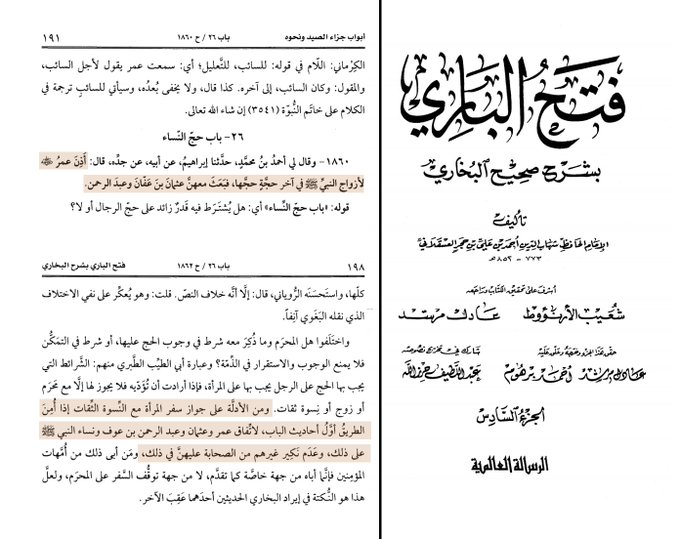 أبواب جزاء الصيد ونحوه باب ٢٦ / ح ١٨٦٠ ١٩١
الكِرْماني: اللّام في قوله: للسائب، للتَّعليل؛ أي: سمعت عمر يقول لأجل السائب،
والمقول: وكان السائب، إلى آخره. كذا قال، ولا يخفى بُعدُه، وسيأتي للسائبِ ترجمة في
الكلام على خاتَم النُّبوّة (٣٥٤١) إن شاء الله تعالى.
٢٦- باب حجّ النّساء
١٨٦٠- وقال لي أحمدُ بنُ محمَّدٍ، حدَّثنا إبراهيمُ، عن أبيه، عن جدِّه، قال: أَذِنَ عمرُ ﷺ
لأزواجِ النبيِّ ﷺ في آخر حجَّةٍ حجَّها، فبَعَثَ معهنَّ عثمانَ بنَ عَفّانَ وعبدَ الرحمن.
قوله: «باب حجّ النِّساء» أي: هل يُشتَرط فيه قَدرٌ زائد على حجّ الرجال أو لا؟
١٩٨ باب ٢٦ / ح ١٨٦٢ فتح الباري بشرح البخاري
كلّها، واستَحسَنَه الرُّوياني، قال: إلّا أنَّه خلاف النصّ. قلت: وهو يُعكِّر على نفي الاختلاف
الذي نقله البَغَوي آنِفاً.
واختَلَفوا هل المحرَم وما ذُكِرَ معه شرط في وجوب الحج عليها، أو شرط في التمَكُّن
فلا يمنع الوجوب والاستقرار في الذِّمّة؟ وعبارة أبي الطيِّب الطَّبري منهم: الشَّرائط التي
يجب بها الحج على الرجل يجب بها على المرأة، فإذا أرادت أن تُؤدّيَه فلا يجوز لها إلّا مع مَحرَم
أو زوج أو نِسوة ثقات. ومن الأدلَّة على جواز سفر المرأة مع النِّسوة الثِّقات إذا أُمِنَ
الطريقُ أوَّلُ أحاديث الباب، لاتِّفاق عمر وعثمان وعبد الرحمن بن عوف ونساء النبي ﷺ
على ذلك، وعَدَم نَكِير غيرهم من الصحابة عليهنَّ في ذلك، ومَن أبى ذلك من أُمَّهات
المؤمنين فإنَّما أباه من جهة خاصَّة كما تقدَّم، لا من جهة توقُّف السَّفر على المحرَم، ولعلَّ
هذا هو النُّكتة في إيراد البخاري الحديثين أحدَهما عَقِبَ الآخر.
فتح الباري
بشرح صحيح البخاري
تأليف
الإمام الحافظ شهاب الدين أحمد بن علي بن حجر العسقلاني
٧٧٣ - ٨٥٢ هـ
أشرف على تحقيق الكتاب وراجعه
شعيب الأرنؤوط عادل مرشد
حقق هذا الجزء وخرجه وعلق عليه
شارك في تخريج نصوصه
عادل مرشد أحمد برهوم عبد اللطيف حرز الله
الجزء السادس
الرسالة العالمية